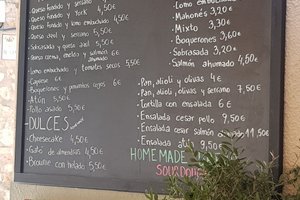 Queso fundido y serrano 5,50€
Queso fundido y York 4,50€
Queso y lomo embuchado 4,50€
Queso azul y serrano 5,50€
Sobrasada y queso azul 5,50€
Queso crema, melva y salmón 6€
Lomo embuchado y tomates secos 5,50€
Caprese 6€
Boquerones y pimientos cojos 6€
Atún 5,50€
Pollo asado 5,50€
-DULCES
-Cheesecake 4,50€
-Gató de almendras 4,50€
-Brownie con helado 5,50€
-Lomo embuchado
-Mahonés 3,20€
-Mixto 3,30€
-Boquerones 3,60€
-Sobrasada 3,20€
-Salmón ahumado 4,50€
-Pan, alioli y olivas 4€
-Pan, alioli, olivas y serrano 7,50€
-Tortilla con ensalada 6€
-Ensalada cesar pollo 9,50€
-Ensalada cesar salmón ahumado 11,50€
-Ensalada atún 9,50€
HOMEMADE
SOURDOUGH